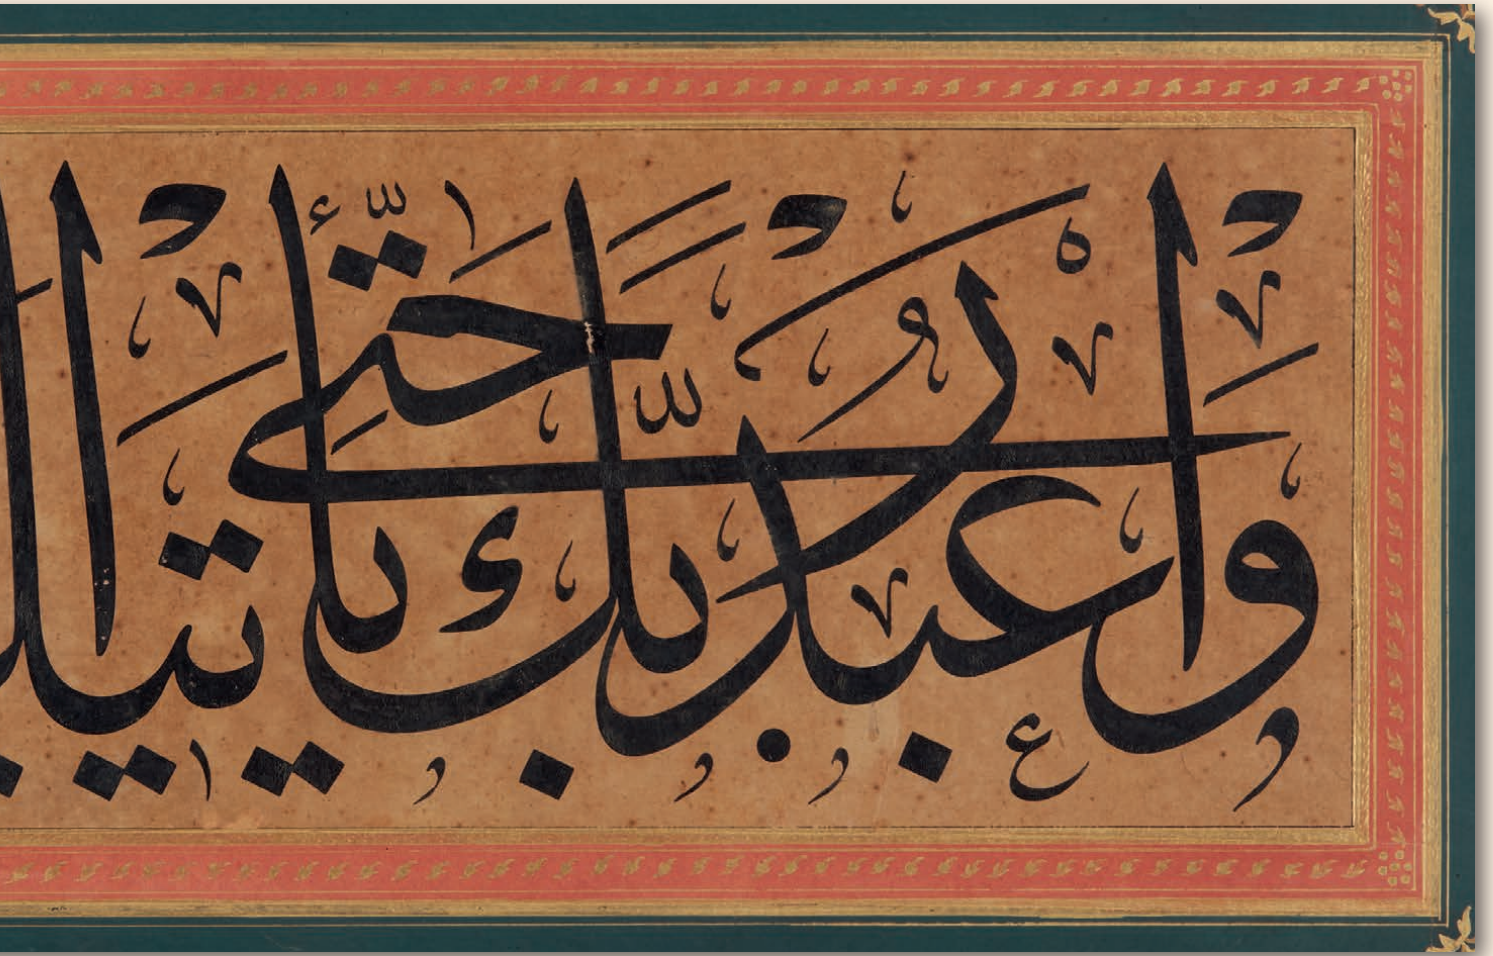 وَاعْبُدْ رَبَّكَ حَتَّى يَأْتِيَكَ